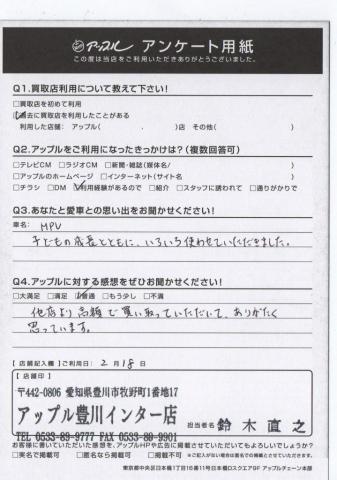 アップル アンケート用紙
この度は当店をご利用いただきありがとうございました。
Q1.買取店利用について教えて下さい!
□買取店を初めて利用
□過去に買取店を利用したことがある
利用した店舗: アップル( )店 その他( )
Q2.アップルをご利用になったきっかけは?(複数回答可)
□テレビCM □ラジオCM □新聞・雑誌(媒体名/ )
□アップルのホームページ □インターネット(サイト名 )
□チラシ □DM □利用経験があるので □紹介 □スタッフに誘われて □通りがかりで
Q3.あなたと愛車との思い出をお聞かせください!
車名: MPV
子どもの成長とともに、いろいろ使わせていただきました。
Q4.アップルに対する感想をぜひお聞かせください!
□大満足 □満足 □普通 □もう少し □不満
他店より高額で買い取っていただいて、ありがたく
思っています。
【店舗記入欄】ご利用日: 2月18日
【店舗印】
〒442-0806 愛知県豊川市牧野町1番地17
アップル豊川インター店
TEL 0533-89-9777 FAX 0533-89-9901
担当者名 鈴木直之
お客様に書いていただいた感想を、アップルHPや広告に掲載させていただいてもよろしいでしょうか?
□実名で掲載可 □匿名なら掲載可 □掲載不可 ※ご記入がない場合は匿名での掲載とさせていただきます。
東京都中央区日本橋1丁目16番11号日本橋DスクエアGF アップルチェーン本部